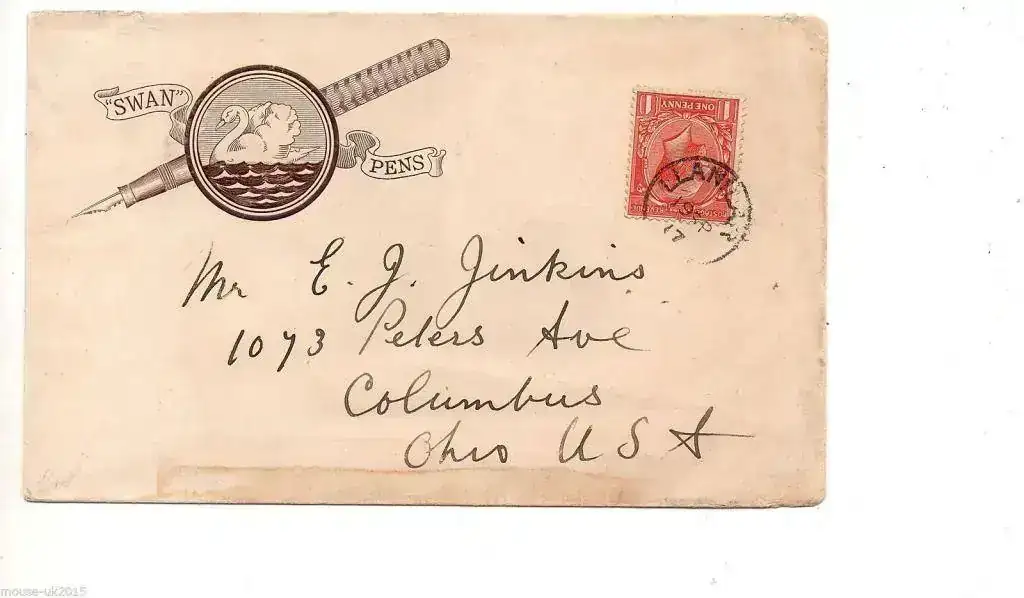 "SWAN"
PENS
ONE PENNY
1
1
POSTAGE REVENUE
17
Mr E. J. Jinkins
1073 Peters Ave
Columbus
Ohio U S A
mouse-uk2015